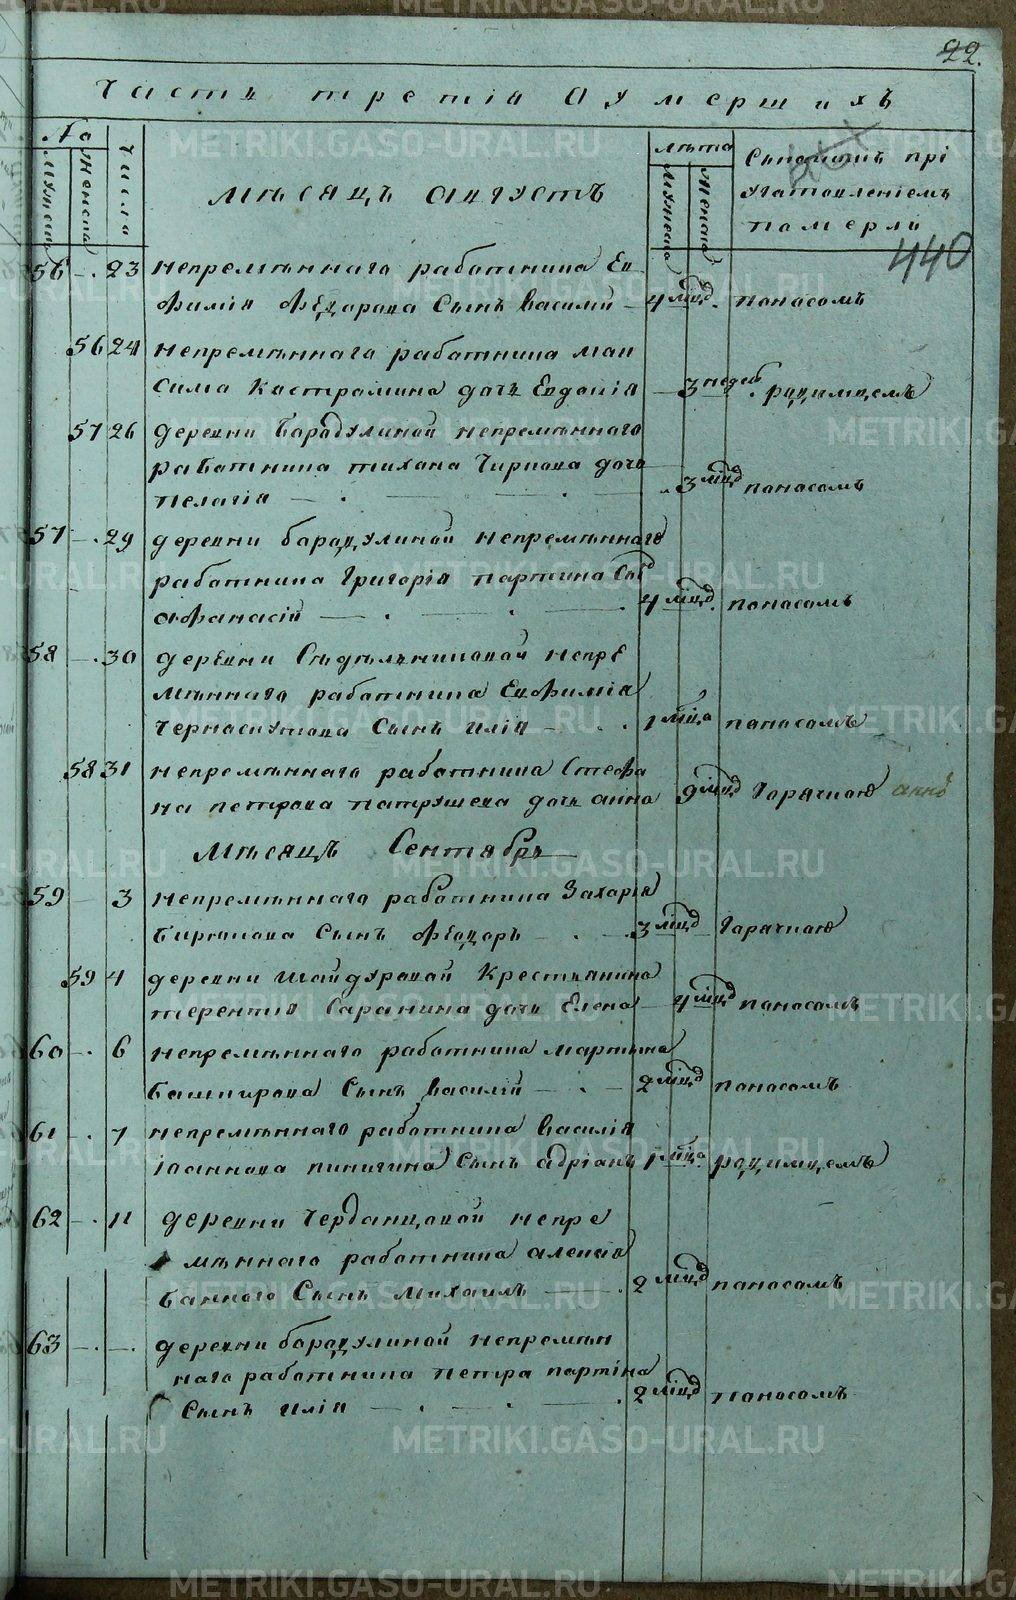 22.
Часть третія О Умершихъ
№ Числа Лѣта Съпоимъ прі
Мужеска Женска Мужеска Женска Уготовленіемъ
Мѣсяцъ Августъ Померли
440
56 - . 23 непремѣннаго работника Ев
фимія Федарова Сынъ василій - 4 міцъ. поносомъ
56 24 непремѣннаго работника мак
сима Кастрамина дочь Евдокія - 3 недел. родимцемъ
57 26 деревни Барадулиной непремѣннаго
работника тихана Чиркова дочь
пелагія - . - . - 3 міцъ поносомъ
57 - . 29 деревни барадулиной непремѣннаго
работника Григорія партина Сынъ
афанасій - . - . - . 4 міцъ. поносомъ
58 - . 30 деревни Сѣдѣльниковой непре
мѣннаго работника Евфимія
Черноскутова Сынъ илія - . - . 1 міца поносомъ
58 31 непремѣннаго работника Стефа
на петрова патрушева дочь анна 9 міцъ Горячкою
Мѣсяцъ Сентябрь
59 - 3 непремѣннаго работника Захарія
Бирюкова Сынъ Феодоръ - . - . 3 міцъ Горячкою
59 4 деревни шайдуровой Крестьянина
терентія Саранина дочь Елена - 4 міцъ поносомъ
60 - . 6 непремѣннаго работника мартына
башкирова Сынъ василій - . - 2 міцъ поносомъ
61 - . 7 непремѣннаго работника василія
іоаннова пинягина Сынъ адріанъ 1 міца. родимцемъ
62 - . 11 деревни Черданцовой непре
мѣннаго работника алексія
банного Сынъ михаилъ - . 2 міцъ поносомъ
63 - . - . деревни барадулиной непремѣн
наго работника петра партина
Сынъ илія - . - . - . 2 міцъ поносомъ
METRIKI.GASO-URAL.RU